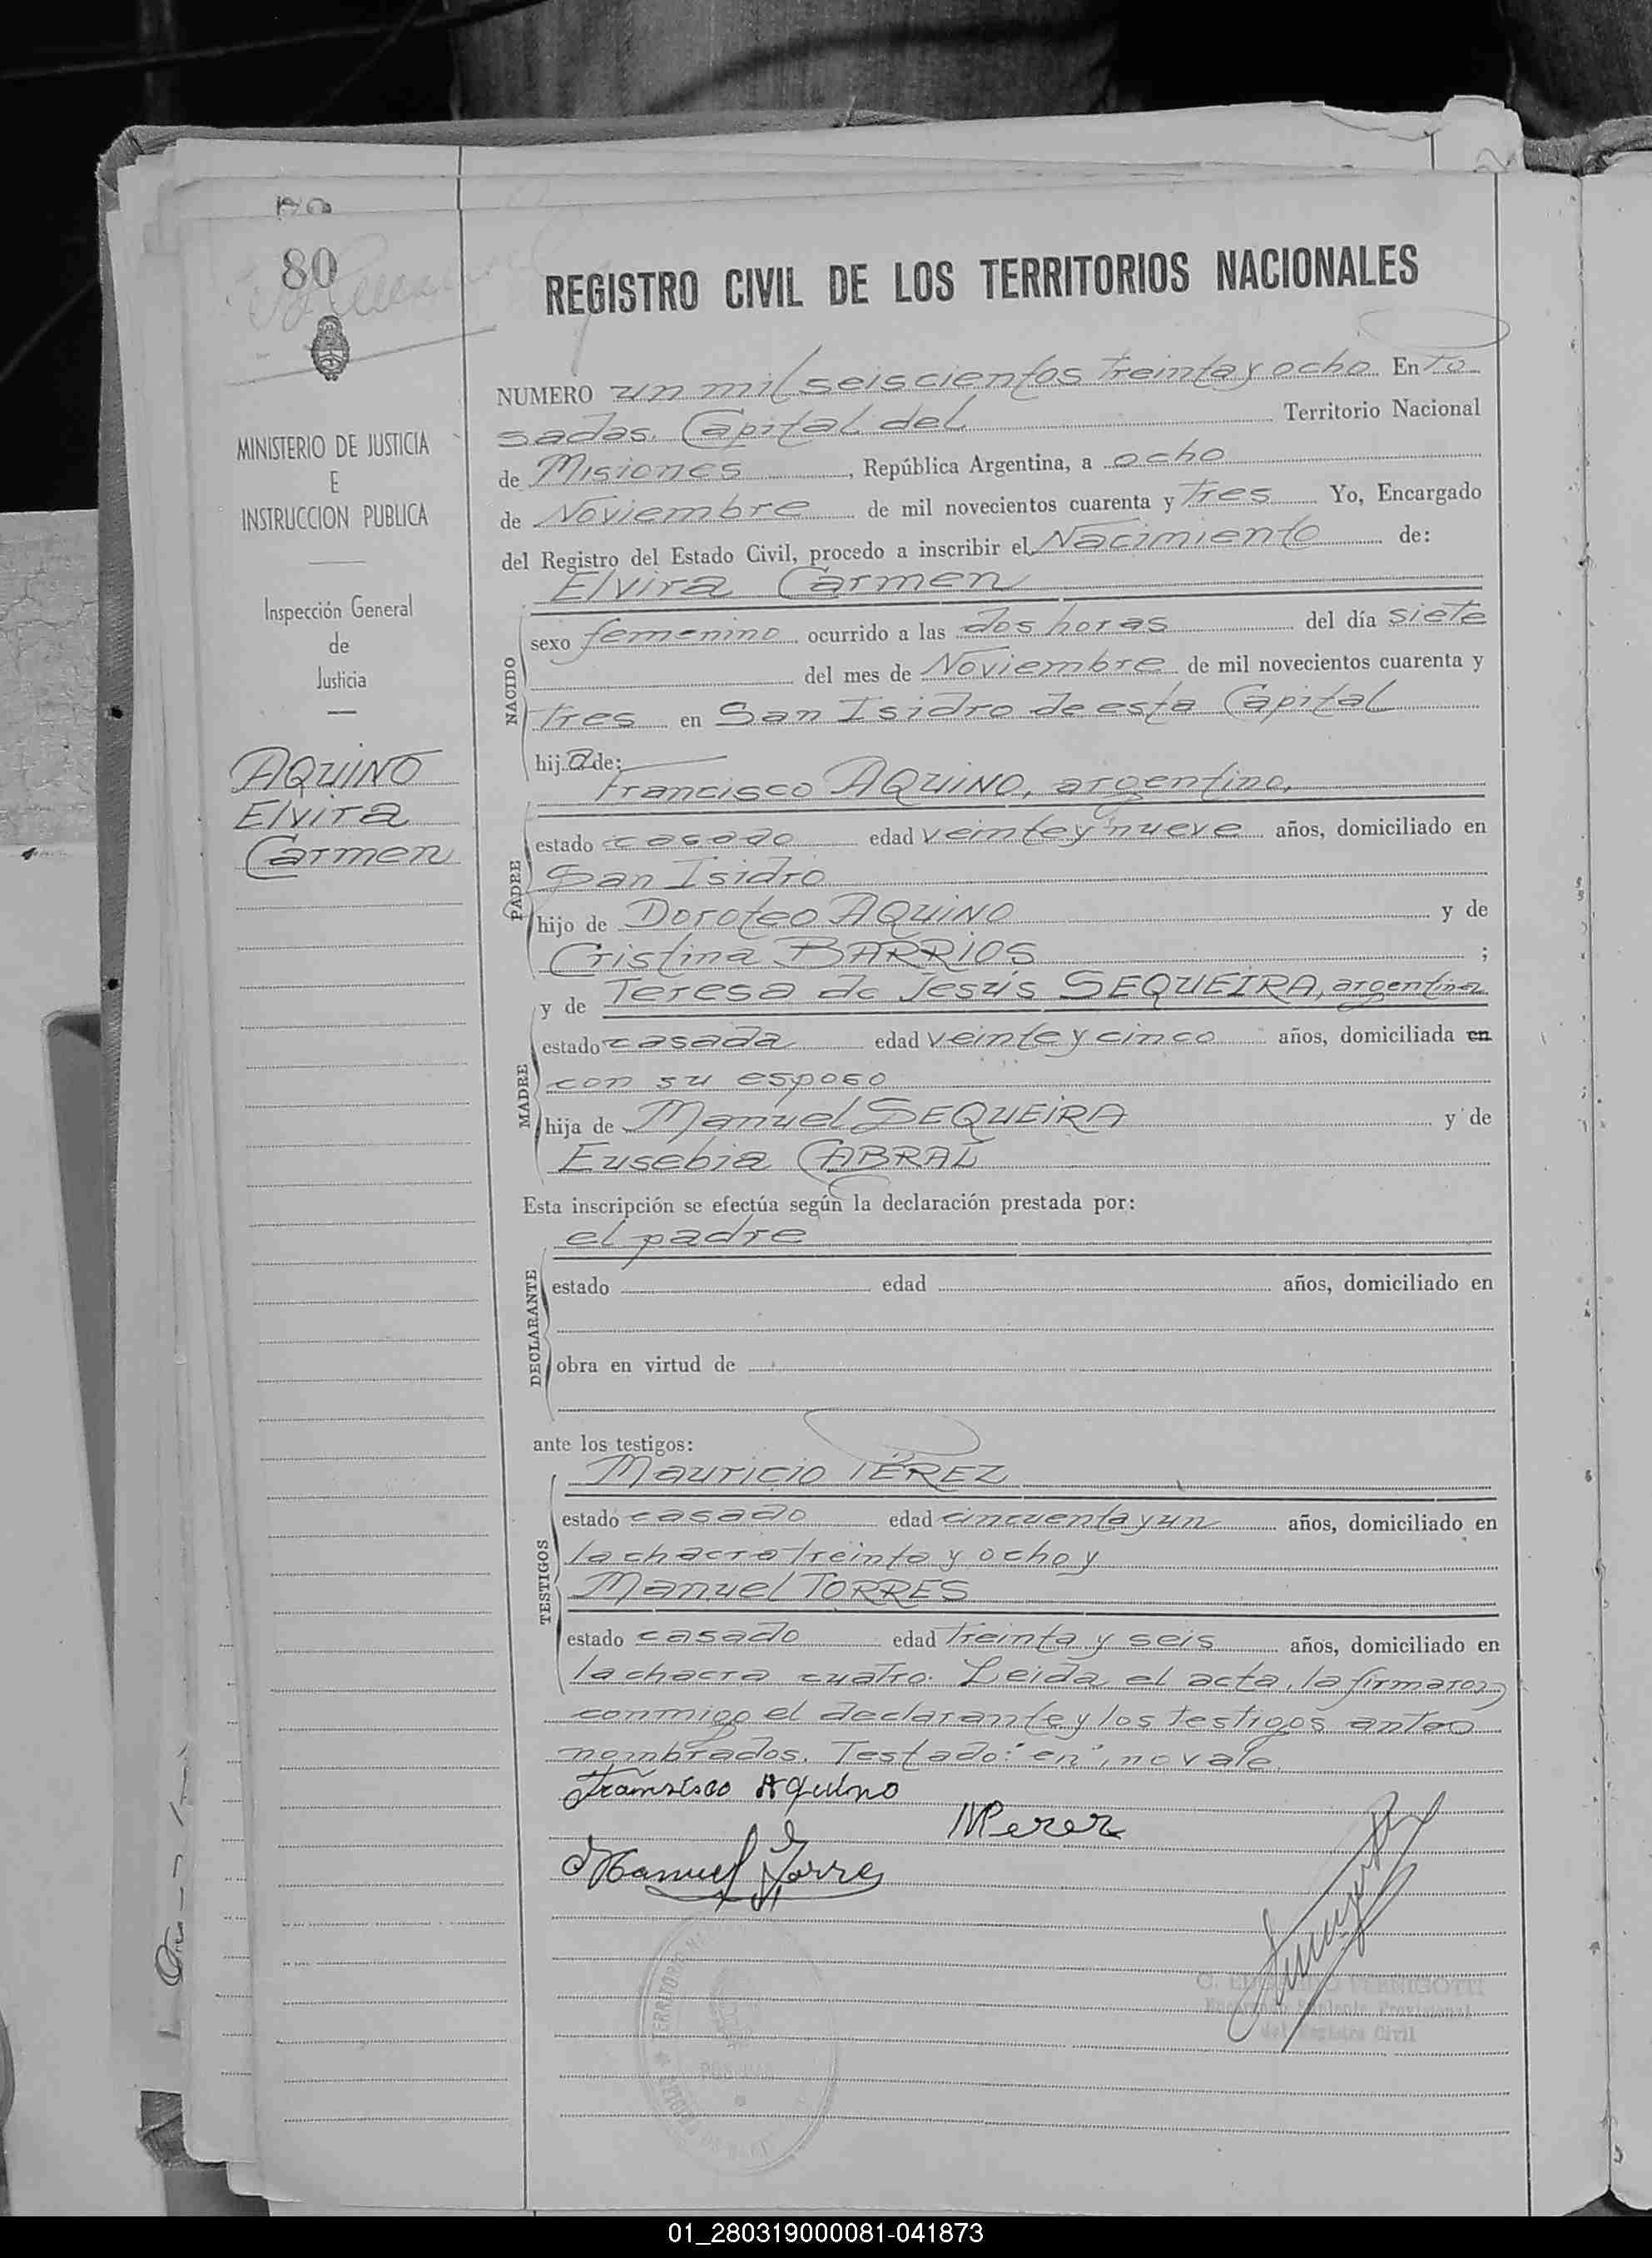 80
REGISTRO CIVIL DE LOS TERRITORIOS NACIONALES
MINISTERIO DE JUSTICIA
E
INSTRUCCION PUBLICA
Inspección General
de
Justicia
AQUINO
Elvira
Carmen
NUMERO un mil seiscientos treinta y ocho En Po-
sadas. Capital del Territorio Nacional
de Misiones, República Argentina, a ocho
de Noviembre de mil novecientos cuarenta y tres Yo, Encargado
del Registro del Estado Civil, procedo a inscribir el Nacimiento de:
Elvira Carmen
NACIDO
sexo femenino ocurrido a las dos horas del día siete
del mes de Noviembre de mil novecientos cuarenta y
tres en San Isidro de esta Capital
hija de:
Francisco AQUINO, argentino,
PADRE
estado casado edad veinte y nueve años, domiciliado en
San Isidro
hijo de Doroteo AQUINO y de
Cristina BARRIOS ;
y de Teresa de Jesús SEQUEIRA, argentina
MADRE
estado casada edad veinte y cinco años, domiciliada en
con su esposo
hija de Manuel SEQUEIRA y de
Eusebia CABRAL
Esta inscripción se efectúa según la declaración prestada por:
el padre
DECLARANTE
estado edad años, domiciliado en
obra en virtud de
ante los testigos:
Mauricio PÉREZ
TESTIGOS
estado casado edad cincuenta y un años, domiciliado en
la chacra treinta y ocho y
Manuel TORRES
estado casado edad treinta y seis años, domiciliado en
la chacra cuatro. Leida el acta, la firmaron
conmigo el declarante y los testigos antes
nombrados. Testado: "en", no vale.
Fransisco Aquino
MPerez
Manuel Torres
Provisional
del Registro Civil
01_280319000081-041873